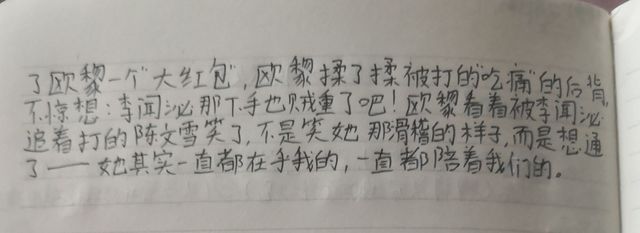 了欧黎一个"大红包",欧黎揉了揉被打的"吃痛"的后背,
不惊想:李闻泌那下手也贼重了吧!欧黎看着被李闻泌
追着打的陈文雪笑了,不是笑她那滑稽的样子,而是想通
了——她其实一直都在乎我的,一直都陪着我们的。